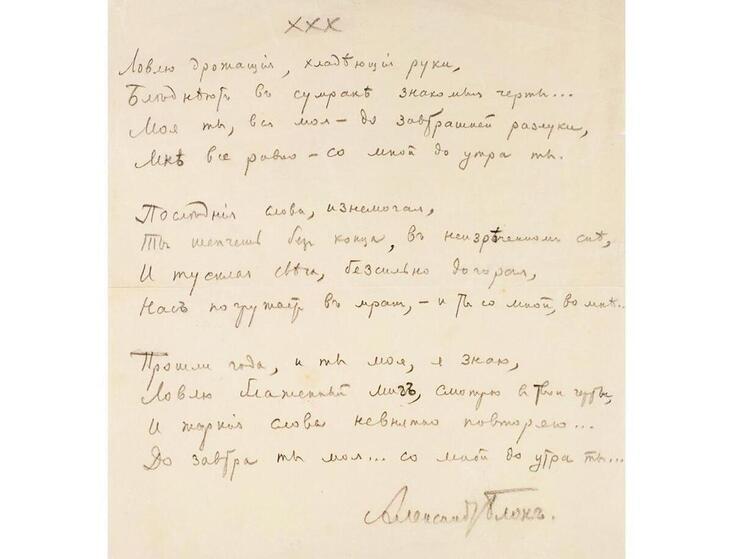 ХХХ
Ловлю дрожащія, хладѣющія руки,
Блѣднѣютъ въ сумракѣ знакомыя черты...
Моя ты, вся моя – до завтрашней разлуки,
Мнѣ все равно – со мной до утра ты.
Послѣднія слова, изнемогая,
Ты шепчешь безъ конца, въ неизрѣченномъ снѣ,
И тусклая свѣча, безсильно догорая,
Насъ погружаетъ въ мракъ, – и ты со мной, во мнѣ...
Прошли года, и ты моя, я знаю,
Ловлю блаженный мигъ, смотрю въ твои черты,
И жаркія слова невнятно повторяю...
До завтра ты моя... со мной до утра ты...
Александръ Блокъ.